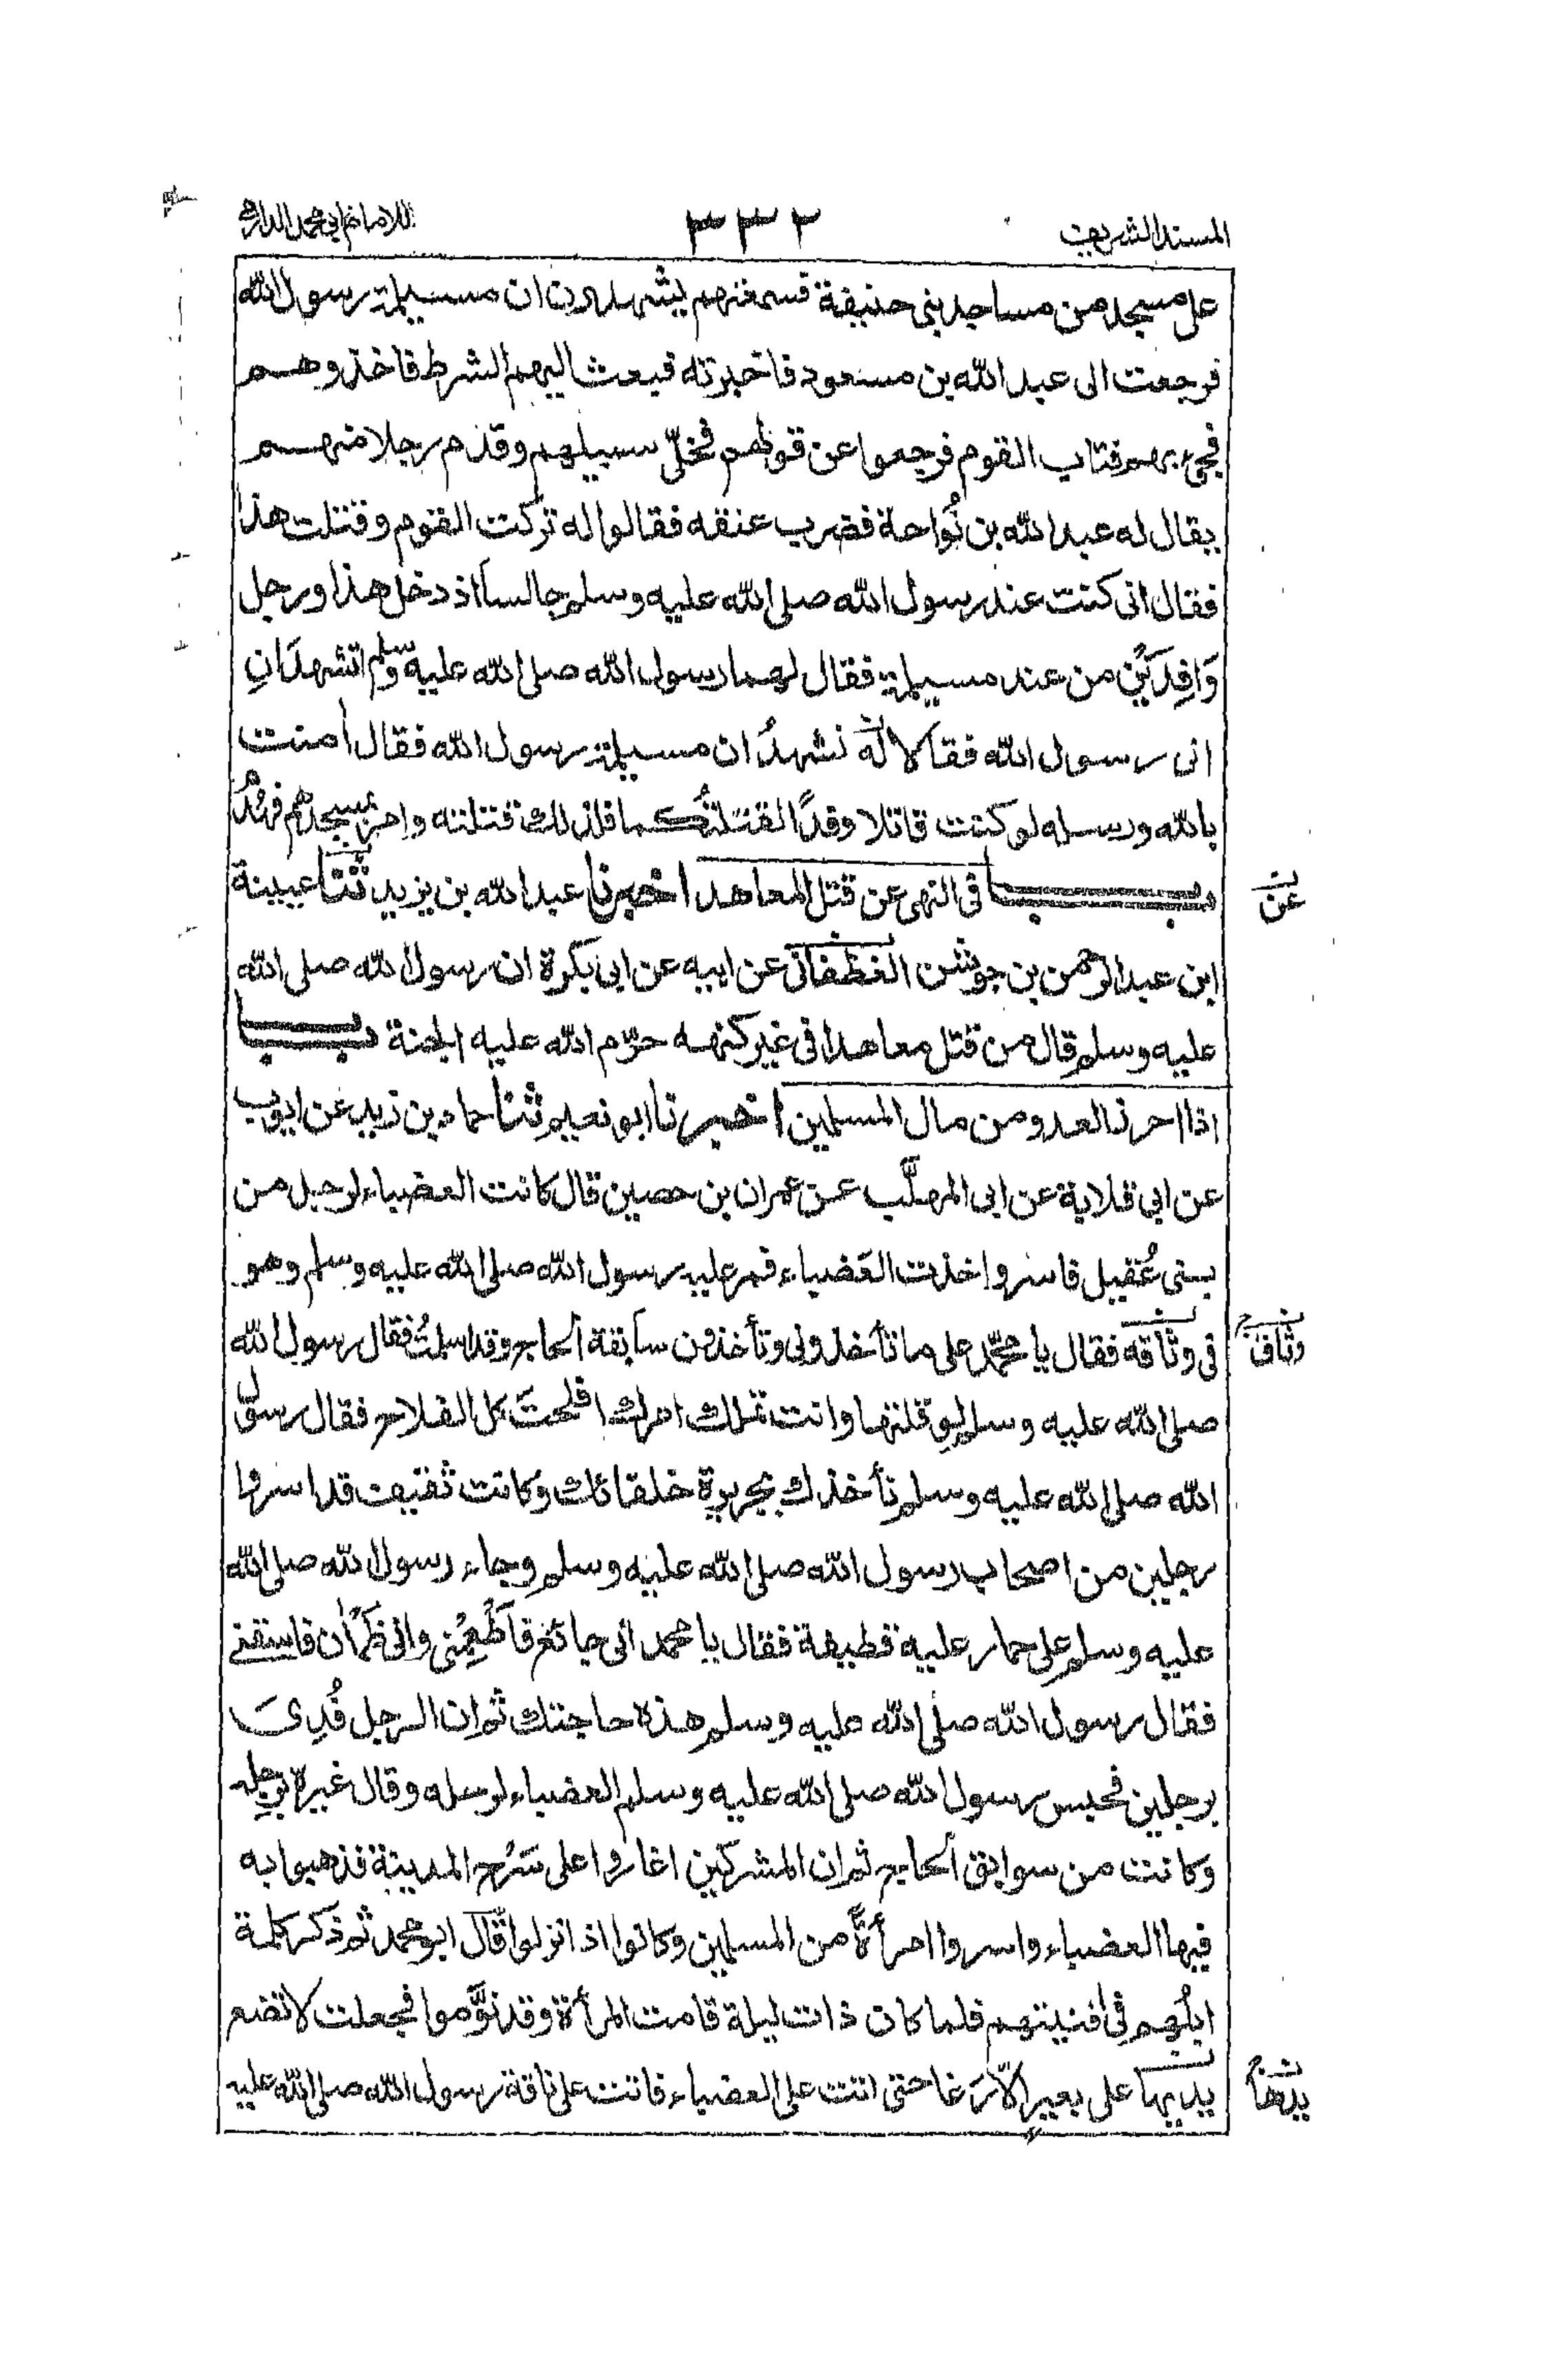 المسند الشريف
٣٣٢
للامام ابى محمد الدارمى
على مسجد من مساجد بنى حنيفة فسمعتهم يشهدون ان مسيلمة رسول الله
فرجعت الى عبد الله بن مسعود فاخبرته فبعث اليهم الشرط فاخذوهم
فجئ بهم فتاب القوم فرجعوا عن قولهم فخلّى سبيلهم وقدم رجلا منهم
يقال له عبد الله بن نُواحة فضرب عنقه فقالوا له تركت القوم وقتلت هذا
فقال انى كنت عند رسول الله صلى الله عليه وسلم جالساً اذ دخل هذا ورجل
وَافِدَيْنِ من عند مسيلمة فقال لهما رسول الله صلى الله عليه وسلم اتشهدَانِ
انى رسول الله فقالا له نشهدُ ان مسيلمة رسول الله فقال اٰمنت
بالله ورسله لو كنت قاتلا وفدًا لقتلتُكما فلذلك قتلته وامر بمسجدهم فهُدُم
باب فى النهى عن قتل المعاهد اخبرنا عبد الله بن يزيد ثنا عيينة
عن
ابن عبد الرحمن بن جوشن الغطفانى عن ابيه عن ابى بكرة ان رسول الله صلى الله
عليه وسلم قال من قتل معاهدا فى غير كنهه حرّم الله عليه الجنة باب
اذا احرز العدو من مال المسلمين اخبرنا ابو نعيم ثنا حماد بن زيد عن ايوب
عن ابى قلابة عن ابى المهلَّب عن عمران بن حصين قال كانت العضباء لرجل من
بنى عُقيل فاسر واخذت العَضباء فمر عليه رسول الله صلى الله عليه وسلم وهو
فى وثاقه فقال يا محمّد على ما تأخذونى وتأخذون سابقة الحاج وقد اسلمتُ فقال رسول الله
وثاق
صلى الله عليه وسلم لو قلتها وانت تملك امرك افلحتَ كل الفلاح فقال رسول
الله صلى الله عليه وسلم نأخذك بجريرة حلفائك وكانت ثقيف قد اسروا
رجلين من اصحاب رسول الله صلى الله عليه وسلم وجاء رسول الله صلى الله
عليه وسلم على حمار عليه قطيفة فقال يا محمد انى جائع فاَطْعِمْنى وانى ظَمْاٰن فاسقنى
فقال رسول الله صلى الله عليه وسلم هذه حاجتك ثم ان الرجل فُدِىَ
برجلين فحبس رسول الله صلى الله عليه وسلم العضباء لرحله وقال غيره برجله
وكانت من سوابق الحاج ثم ان المشركين اغاروا على سَرْح المدينة فذهبوا به
فيها العضباء واسروا امرأةً من المسلمين وكانوا اذا نزلوا قال ابو محمد ثم ذكر كلمة
ابلُهم فى افنيتهم فلما كان ذات ليلة قامت المرأة وقد نُوِّموا فجعلت لا تضع
يديها على بعير الّا رَغا حتى اتت على العضباء فاتت على ناقة رسول الله صلى الله عليه
يدها